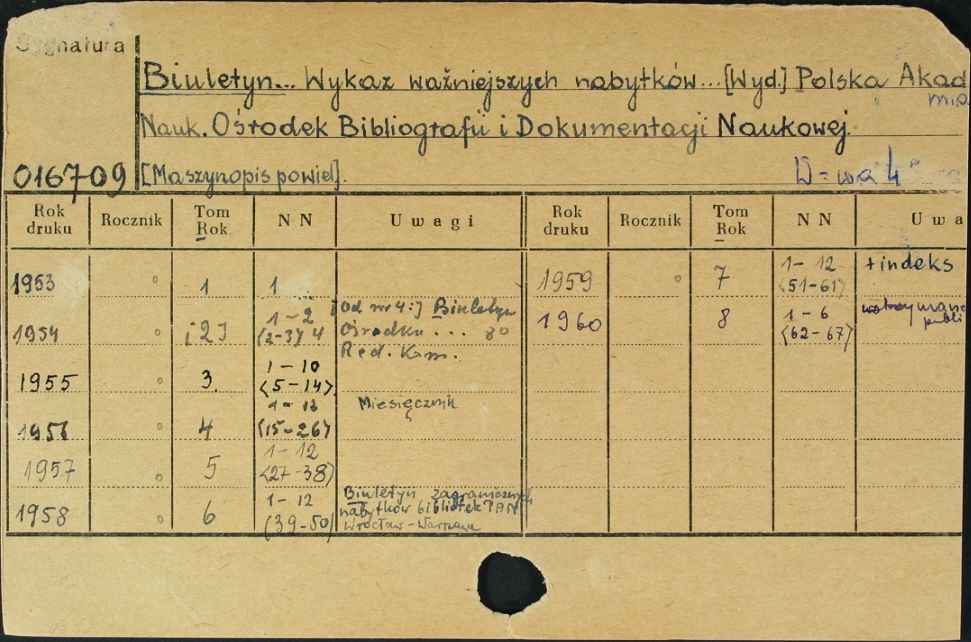 Sygnatura
Biuletyn... Wykaz ważniejszych nabytków... [Wyd.] Polska Akad
mia
Nauk. Ośrodek Bibliografii i Dokumentacji Naukowej.
016709 [Maszynopis powiel]. W-wa 4
Rok druku Rocznik Tom Rok NN Uwagi Rok druku Rocznik Tom Rok NN Uwa
1953 " 1 1 1959 " 7 1-12 <51-61> + indeks
1954 [2] 1-2 <2-3> 4 [Od nr 4:] Biuletyn Ośrodka ... Red. Kom. 1960 8 1-6 <62-67>
1955 " 3 1-10 <5-14>
1956 " 4 1-12 <15-26> Miesięcznik
1957 " 5 1-12 <27-38>
1958 " 6 1-12 <39-50> Biuletyn zagranicznych nabytków bibliotek PAN Wrocław-Warszawa